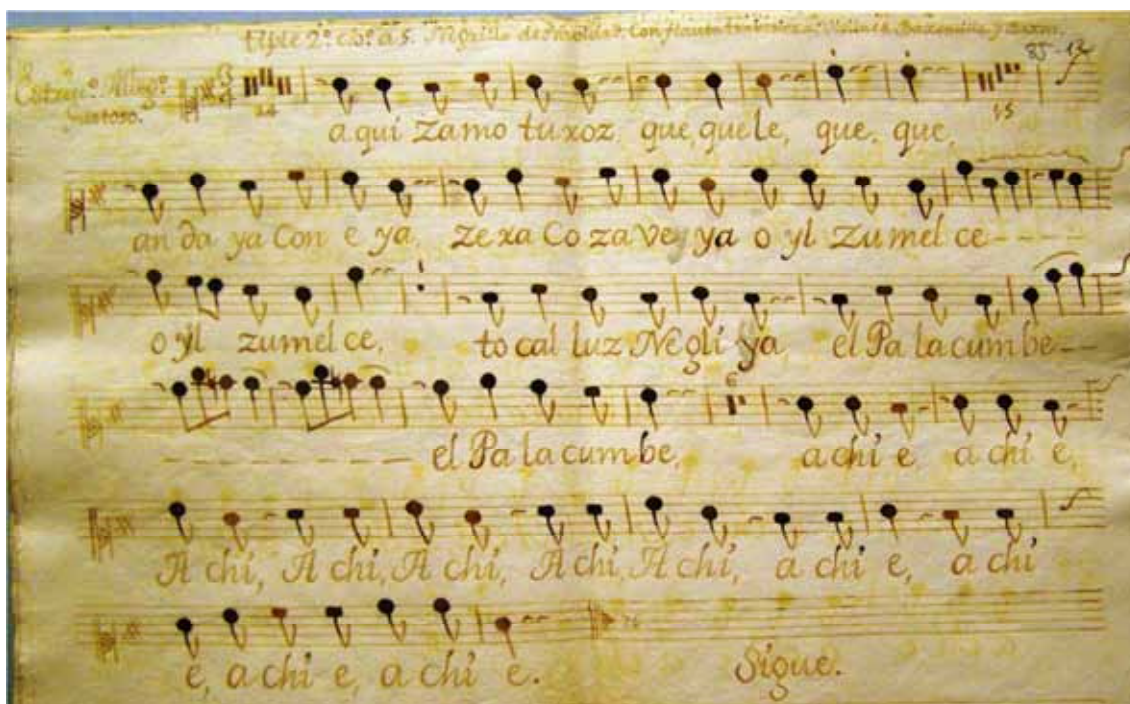 tiple 2º. cº. a 5. Negrilla de Con flauta Violines, y
35-12
Estriº. Allegº. 24 15
gustoso. a qui zamo tuxoz que, quele, que, que,
an da ya Con e ya, zexa Co za Ve ya o yl Zumel ce----
o yl zumel ce, to cal luz Negli ya, el Pa la cum be--
---------- el Pa la cum be, a chi e, a chi e,
A chi, A chi, A chi, A chi, A chi, a chi e, a chi
e, a chi e, a chi e. Sigue.